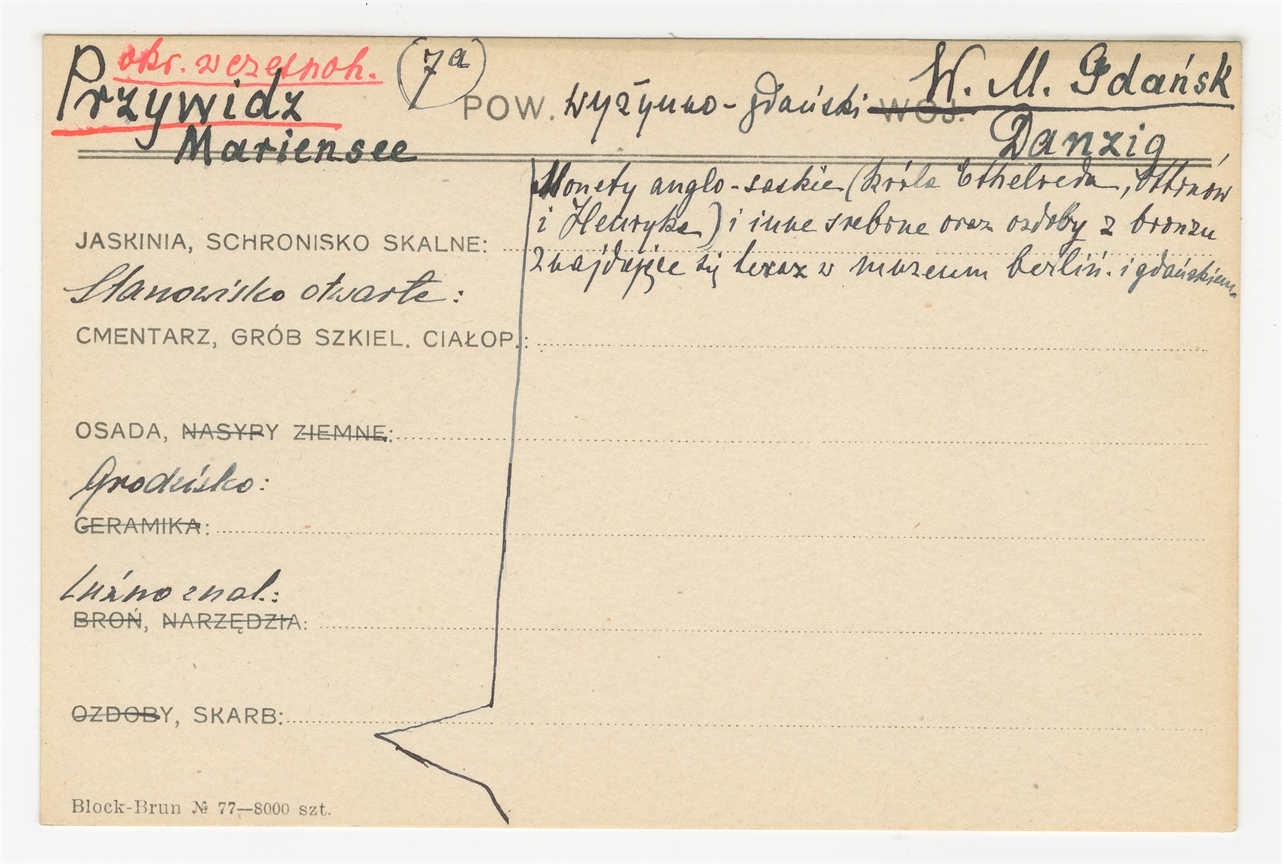 okr. wczesnoh. (7a)
Przywidz POW. wyżynno-gdański WOJ. W. M. Gdańsk
Mariensee Danzig
Monety anglo-saskie (króla Ethelreda, Ottonów
i Henryka) i inne srebrne oraz ozdoby z bronzu
znajdujące się teraz w muzeum berliń. i gdańskiem.
JASKINIA, SCHRONISKO SKALNE:
Stanowisko otwarte:
CMENTARZ, GRÓB SZKIEL. CIAŁOP.:
OSADA, NASYPY ZIEMNE:
Grodzisko:
CERAMIKA:
Luźno znal.:
BROŃ, NARZĘDZIA:
OZDOBY, SKARB:
Block-Brun № 77—8000 szt.